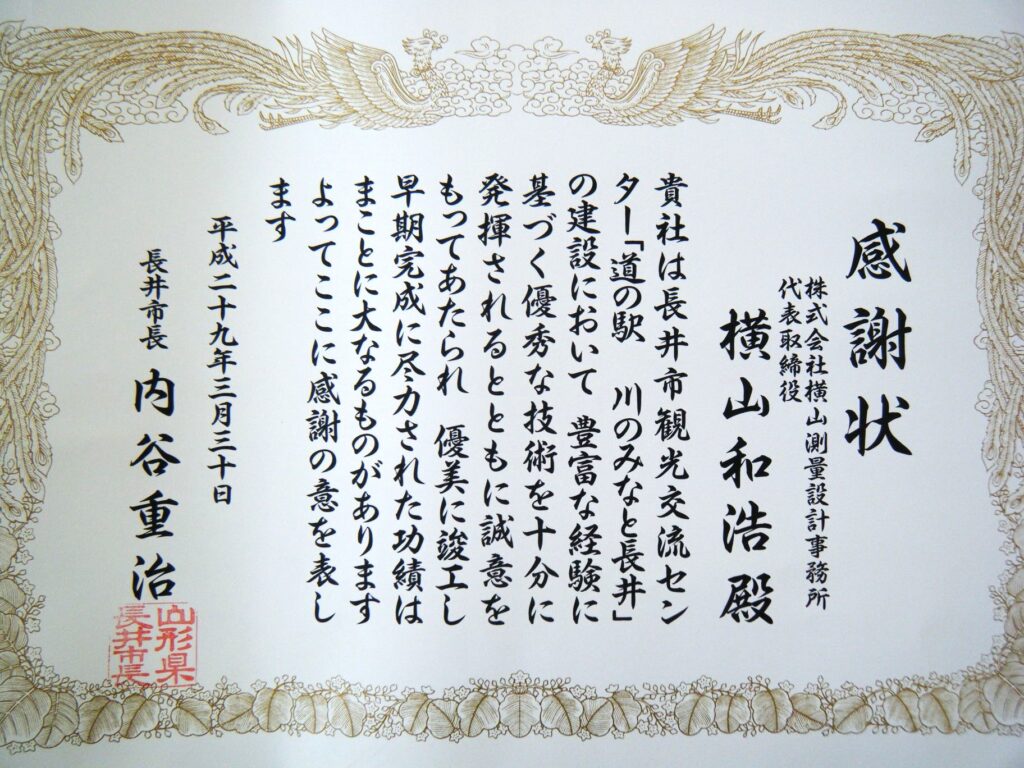 感謝状
株式会社横山測量設計事務所
代表取締役
横山和浩殿
貴社は長井市観光交流セン
ター「道の駅　川のみなと長井」
の建設において　豊富な経験に
基づく優秀な技術を十分に
発揮されるとともに誠意を
もってあたられ　優美に竣工し
早期完成に尽力された功績は
まことに大なるものがあります
よってここに感謝の意を表し
ます
平成二十九年三月三十日
長井市長　内谷重治
山形県
長井市長